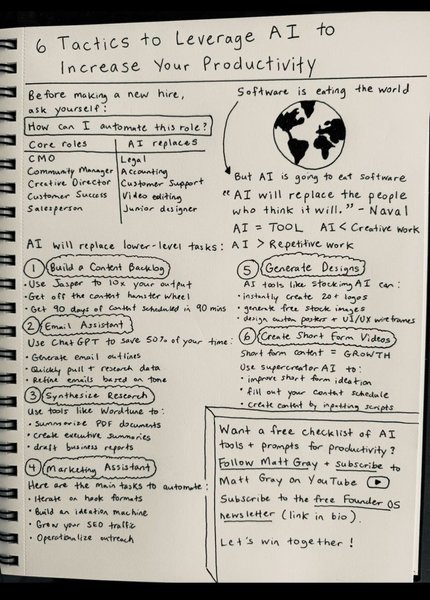 6 Tactics to Leverage AI to
Increase Your Productivity
Before making a new hire,
ask yourself:
How can I automate this role?
Core roles AI replaces
CMO Legal
Community Manager Accounting
Creative Director Customer Support
Customer Success Video editing
Salesperson Junior designer
Software is eating the world
But AI is going to eat software
"AI will replace the people
who think it will." - Naval
AI = TOOL AI < Creative work
AI will replace lower-level tasks: AI > Repetitive work
1 Build a Content Backlog
• Use Jasper to 10x your output
• Get off the content hamster wheel
• Get 90 days of content scheduled in 90 mins
2 Email Assistant
Use Chat GPT to save 50% of your time:
• Generate email outlines
• Quickly pull + research data
• Refine emails based on tone
3 Synthesize Research
Use tools like Wordtune to:
• summarize PDF documents
• create executive summaries
• draft business reports
4 Marketing Assistant
Here are the main tasks to automate:
• Iterate on hook formats
• Build an ideation machine
• Grow your SEO traffic
• Operationalize outreach
5 Generate Designs
AI tools like stockimg AI can:
• instantly create 20+ logos
• generate free stock images
• design custom posters + UI/UX wireframes
6 Create Short Form Videos
Short form content = GROWTH
Use supercreator AI to:
• improve short form ideation
• fill out your content schedule
• create content by inputting scripts
Want a free checklist of AI
tools + prompts for productivity?
Follow Matt Gray + subscribe to
Matt Gray on YouTube
Subscribe to the free Founder OS
newsletter (link in bio).
Let's win together!